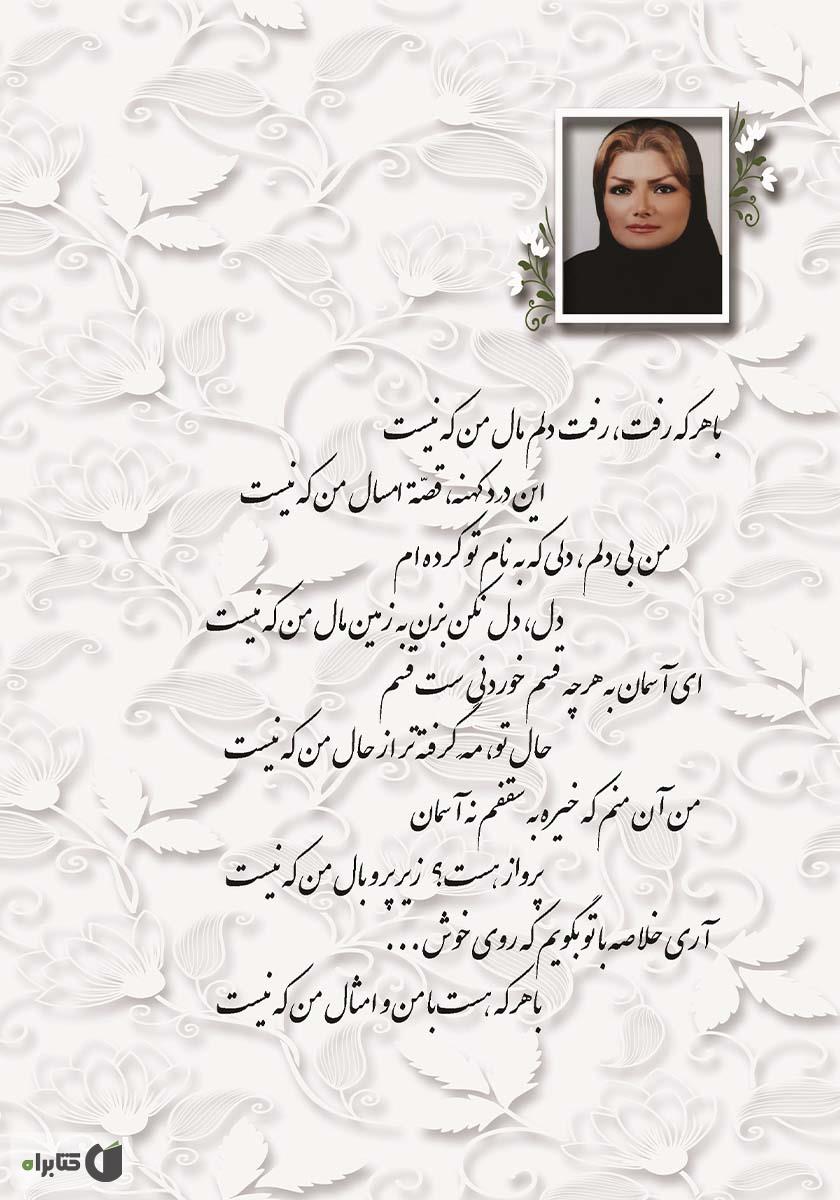 با هر که رفت، رفت دلم مال من که نیست
این درد کهنه، قصّۀ امسال من که نیست
من بی دلم، دلی که به نام تو کرده ام
دل، دل نکن بزن به زمین مال من که نیست
ای آسمان به هر چه قسم خوردنی ست قسم
حال تو، مه گرفته تر از حال من که نیست
من آن منم که خیره به سقفم نه آسمان
پرواز هست؟ زیر پر و بال من که نیست
آری خلاصه با تو بگویم که روی خوش...
با هر که هست با من و امثال من که نیست
کتابراه